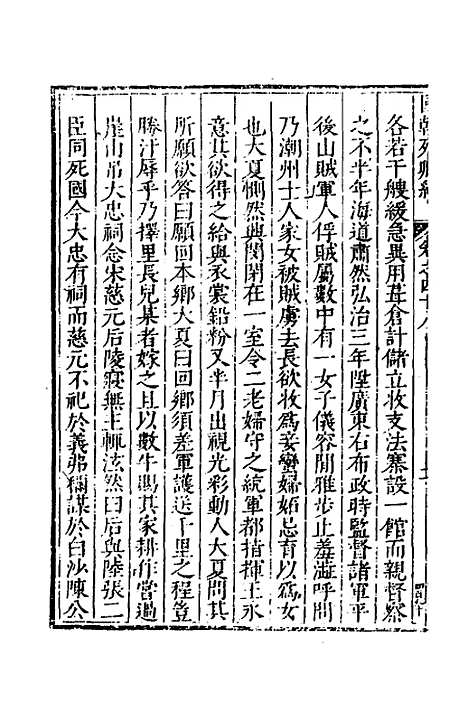 國朝列卿紀 卷之四十八
各若干艘緩急異用葺倉計儲立收支法寨設一館而親督察
之不半年海道肅然弘治三年陞廣東右布政時監督諸軍平
後山賊軍人俘賊屬數中有一女子儀容閒雅步止羞澁呼問
乃潮州士人家女被賊虜去長欲收爲妾蠻婦妬忌有以爲女
也大夏惻然與閔閉在一室令二老婦守之統軍都指揮王永
意其欲得之給與衣裳鉛粉又半月出視光彩動人大夏問其
所願欲答曰願回本鄉大夏曰回鄉須差軍護送千里之程豈
勝汙辱乎乃擇里長兒某者嫁之且以數牛賜其家耕作嘗過
崖山吊大忠祠念宋慈元后陵寢無主輒泫然曰后與陸張二
臣同死國今大忠有祠而慈元不祀於義弗稱謀於白沙陳公